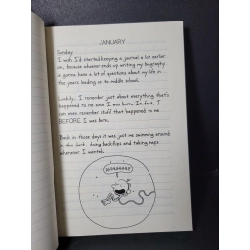 JANUARY
Sunday
I wish I'd started keeping a journal a lot earlier
on, because whoever ends up writing my biography
is gonna have a lot of questions about my life in
the years leading up to middle school.
Luckily, I remember just about everything that's
happened to me since I was born. In fact, I
can even remember stuff that happened to me
BEFORE I was born.
Back in those days it was just me swimming around
in the dark, doing backflips and taking naps
whenever I wanted.